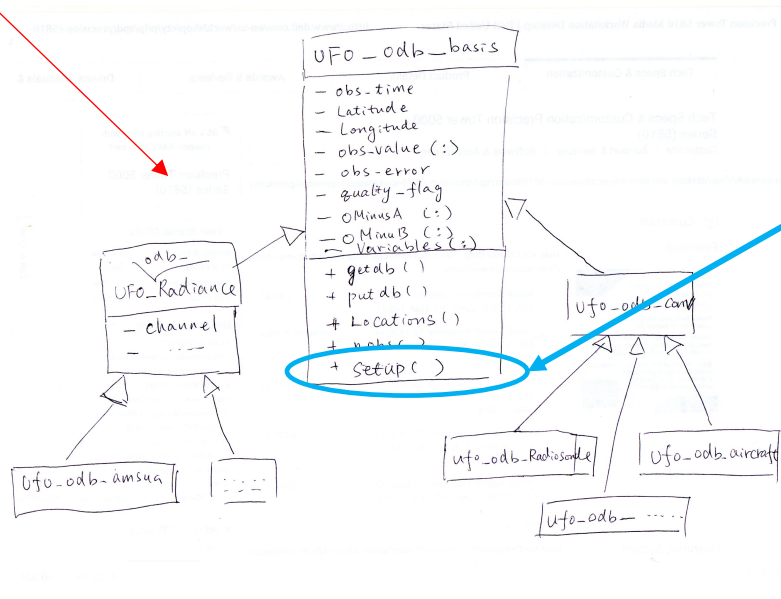 UFO_odb_basis
- obs-time
- Latitude
- Longitude
- obs-value (:)
- obs-error
- quality-flag
- OMinusA (:)
- OMinuB (:)
- Variables (:)
+ getdb ( )
+ putdb ( )
+ Locations ( )
+ nobs ( )
+ setup ( )
odb_
UFO_Radiance
- channel
- ....
Ufo_odb_amsua
ufo_odb_conv
ufo_odb_Radiosonde
Ufo_odb_aircraft
Ufo_odb_ .....